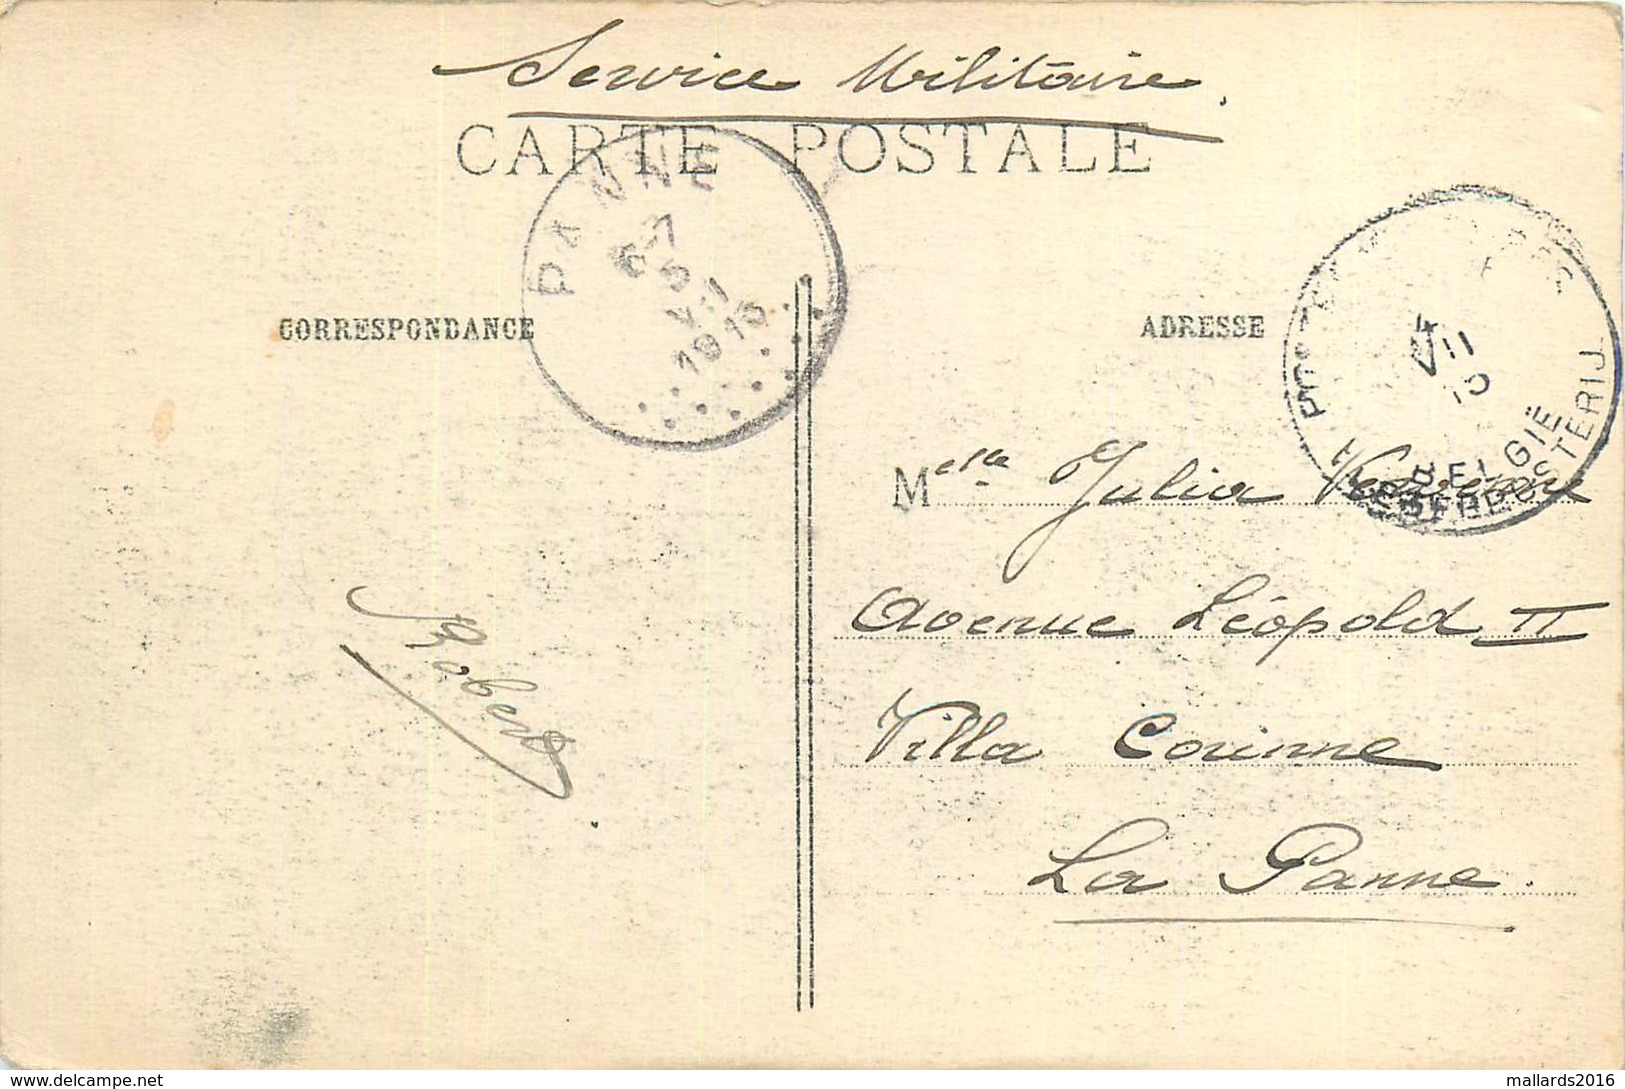 Service Militaire.
CARTE POSTALE
PANNE
6-7
5
VII
1915
CORRESPONDANCE
ADRESSE
4
VII
15
BELGIË
LEGERPOSTERIJ
Melle Julia
Avenue Léopold II
Villa Corinne
La Panne.
Robert
www.delcampe.net
mallards2016